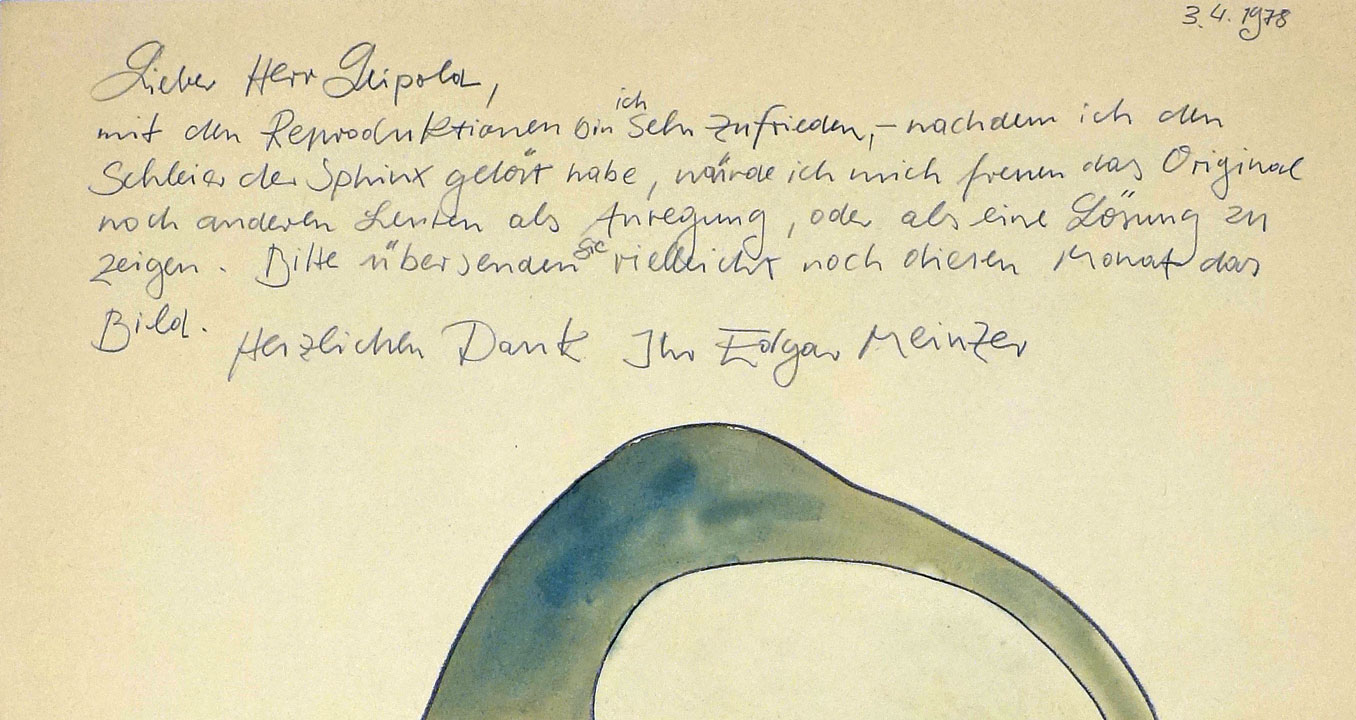 3.4.1978
Lieber Herr Leipold,
mit den Reproduktionen bin ich sehr zufrieden, – nachdem ich den
Schleier der Sphinx gelöst habe, würde ich mich freuen das Original
noch anderen Leuten als Anregung, oder als eine Lösung zu
zeigen. Bitte übersenden Sie vielleicht noch diesen Monat das
Bild.
Herzlichen Dank Ihr Edgar Meinzer